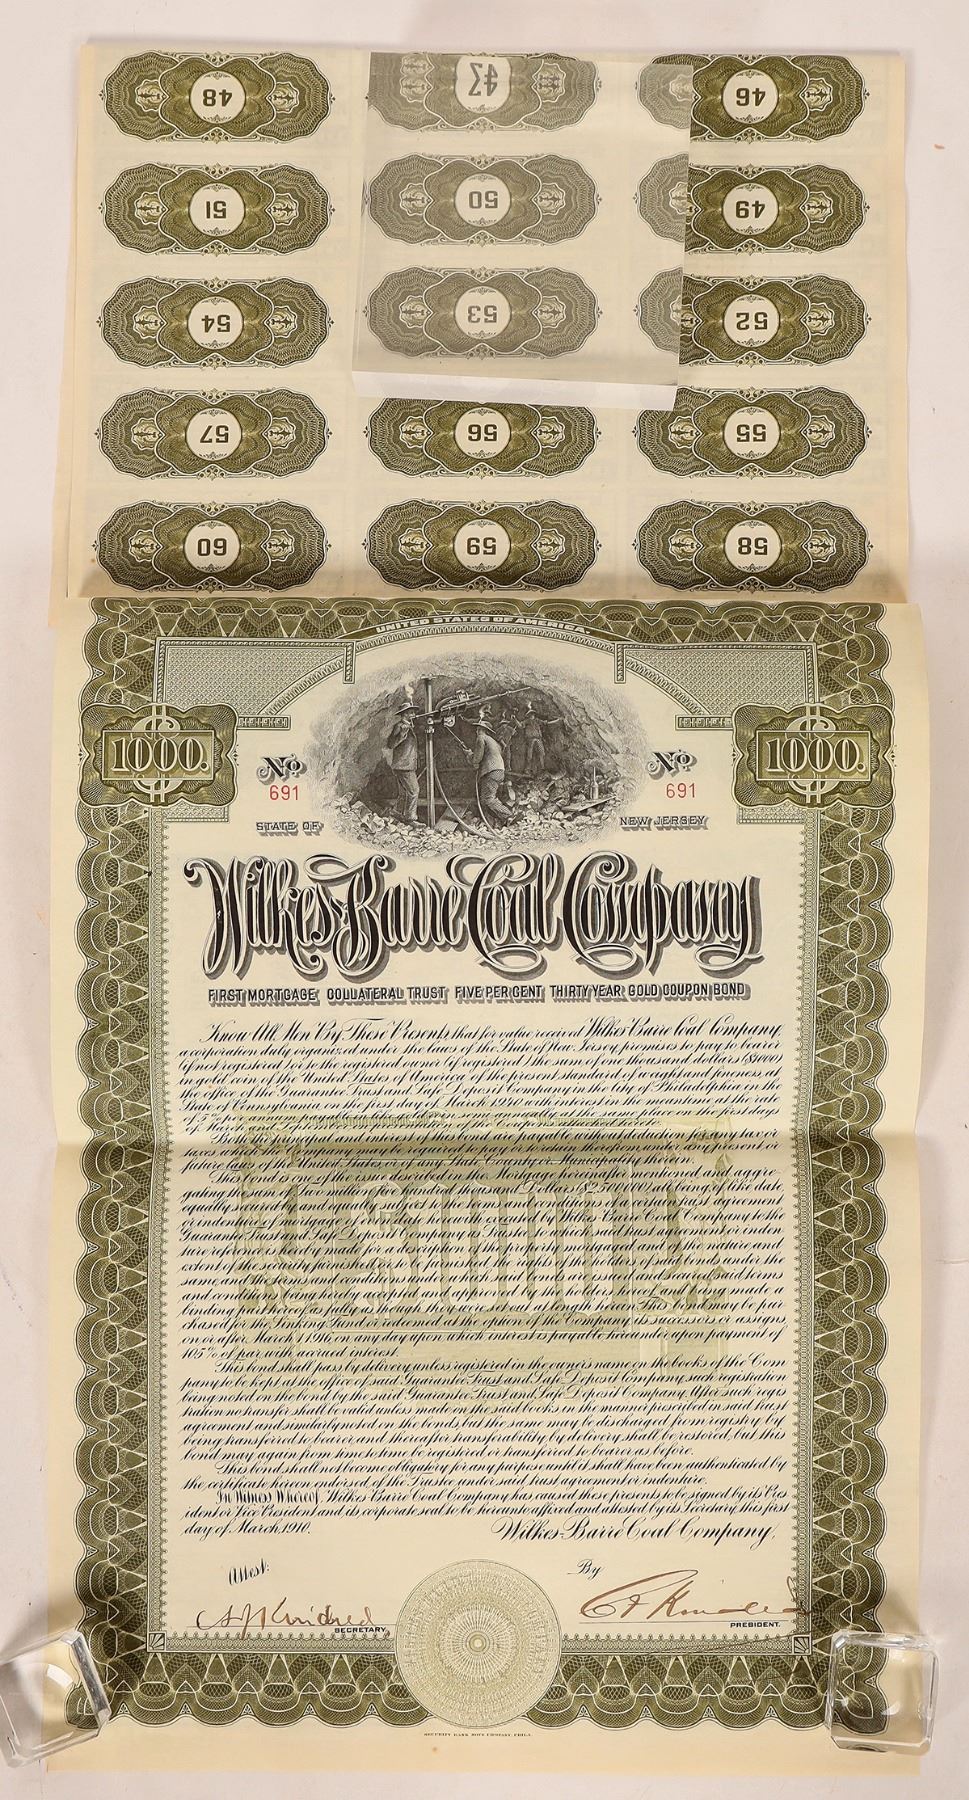 48 47 46
51 50 49
54 53 52
57 56 55
60 59 58
UNITED STATES OF AMERICA
1000. 1000.
No No
691 691
STATE OF NEW JERSEY
Wilkes-Barre Coal Company
FIRST MORTGAGE COLLATERAL TRUST FIVE PER CENT THIRTY YEAR GOLD COUPON BOND
Know All Men By These Presents, that for value received Wilkes-Barre Coal Company,
a corporation duly organized under the laws of the State of New Jersey, promises to pay to bearer
(if not registered) or to the registered owner (if registered) the sum of one thousand dollars ($1000)
in gold coin of the United States of America of the present standard of weight and fineness, at
the office of the Guarantee Trust and Safe Deposit Company in the City of Philadelphia in the
State of Pennsylvania on the first day of March 1940, with interest in the meantime at the rate
of 5% per annum, payable in like gold coin semi annually at the same place on the first days
of March and September on presentation of the Coupons attached hereto.
Both the principal and interest of this bond are payable without deduction for any tax or
taxes which the Company may be required to pay or to retain therefrom under any present or
future laws of the United States or of any State County or Municipality therein.
This bond is one of the issue described in the Mortgage hereinafter mentioned and aggre-
gating the sum of two million five hundred thousand Dollars $2,500,000, all being of like date,
equally secured by and equally subject to the terms and conditions of a certain trust agreement
or indenture of mortgage of even date herewith executed by Wilkes-Barre Coal Company to the
Guarantee Trust and Safe Deposit Company as Trustee to which said trust agreement or inden
ture reference is hereby made for a description of the property mortgaged and of the nature and
extent of the security furnished or to be furnished, the rights of the holders of said bonds under the
same, and the terms and conditions under which said bonds are issued and secured, said terms
and conditions being hereby accepted and approved by the holder hereof and being made a
binding part hereof as fully as though they were set out at length herein. This bond may be pur
chased for the Sinking Fund or redeemed at the option of the Company its successors or assigns,
on or after March 1 1916, on any day upon which interest is payable hereunder upon payment of
105% of par with accrued interest.
This bond shall pass by delivery unless registered in the owner's name on the books of the Com
pany to be kept at the office of said Guarantee Trust and Safe Deposit Company, such registration
being noted on the bond by the said Guarantee Trust and Safe Deposit Company. After such regis
tration no transfer shall be valid unless made on the said books in the manner prescribed in said trust
agreement and similarly noted on the bonds, but the same may be discharged from registry by
being transferred to bearer, and thereafter transferability by delivery shall be restored, but this
bond may again from time to time be registered or transferred to bearer as before.
This bond shall not become obligatory for any purpose until it shall have been authenticated by
the certificate hereon endorsed of the Trustee under said trust agreement or indenture.
In Witness Whereof, Wilkes-Barre Coal Company has caused these presents to be signed by its Pres
ident or Vice President and its corporate seal to be hereunto affixed and attested by its Secretary, this first
day of March 1910. Wilkes-Barre Coal Company,
Attest: By
SECRETARY. PRESIDENT.
SECURITY BANK NOTE COMPANY, PHILA.